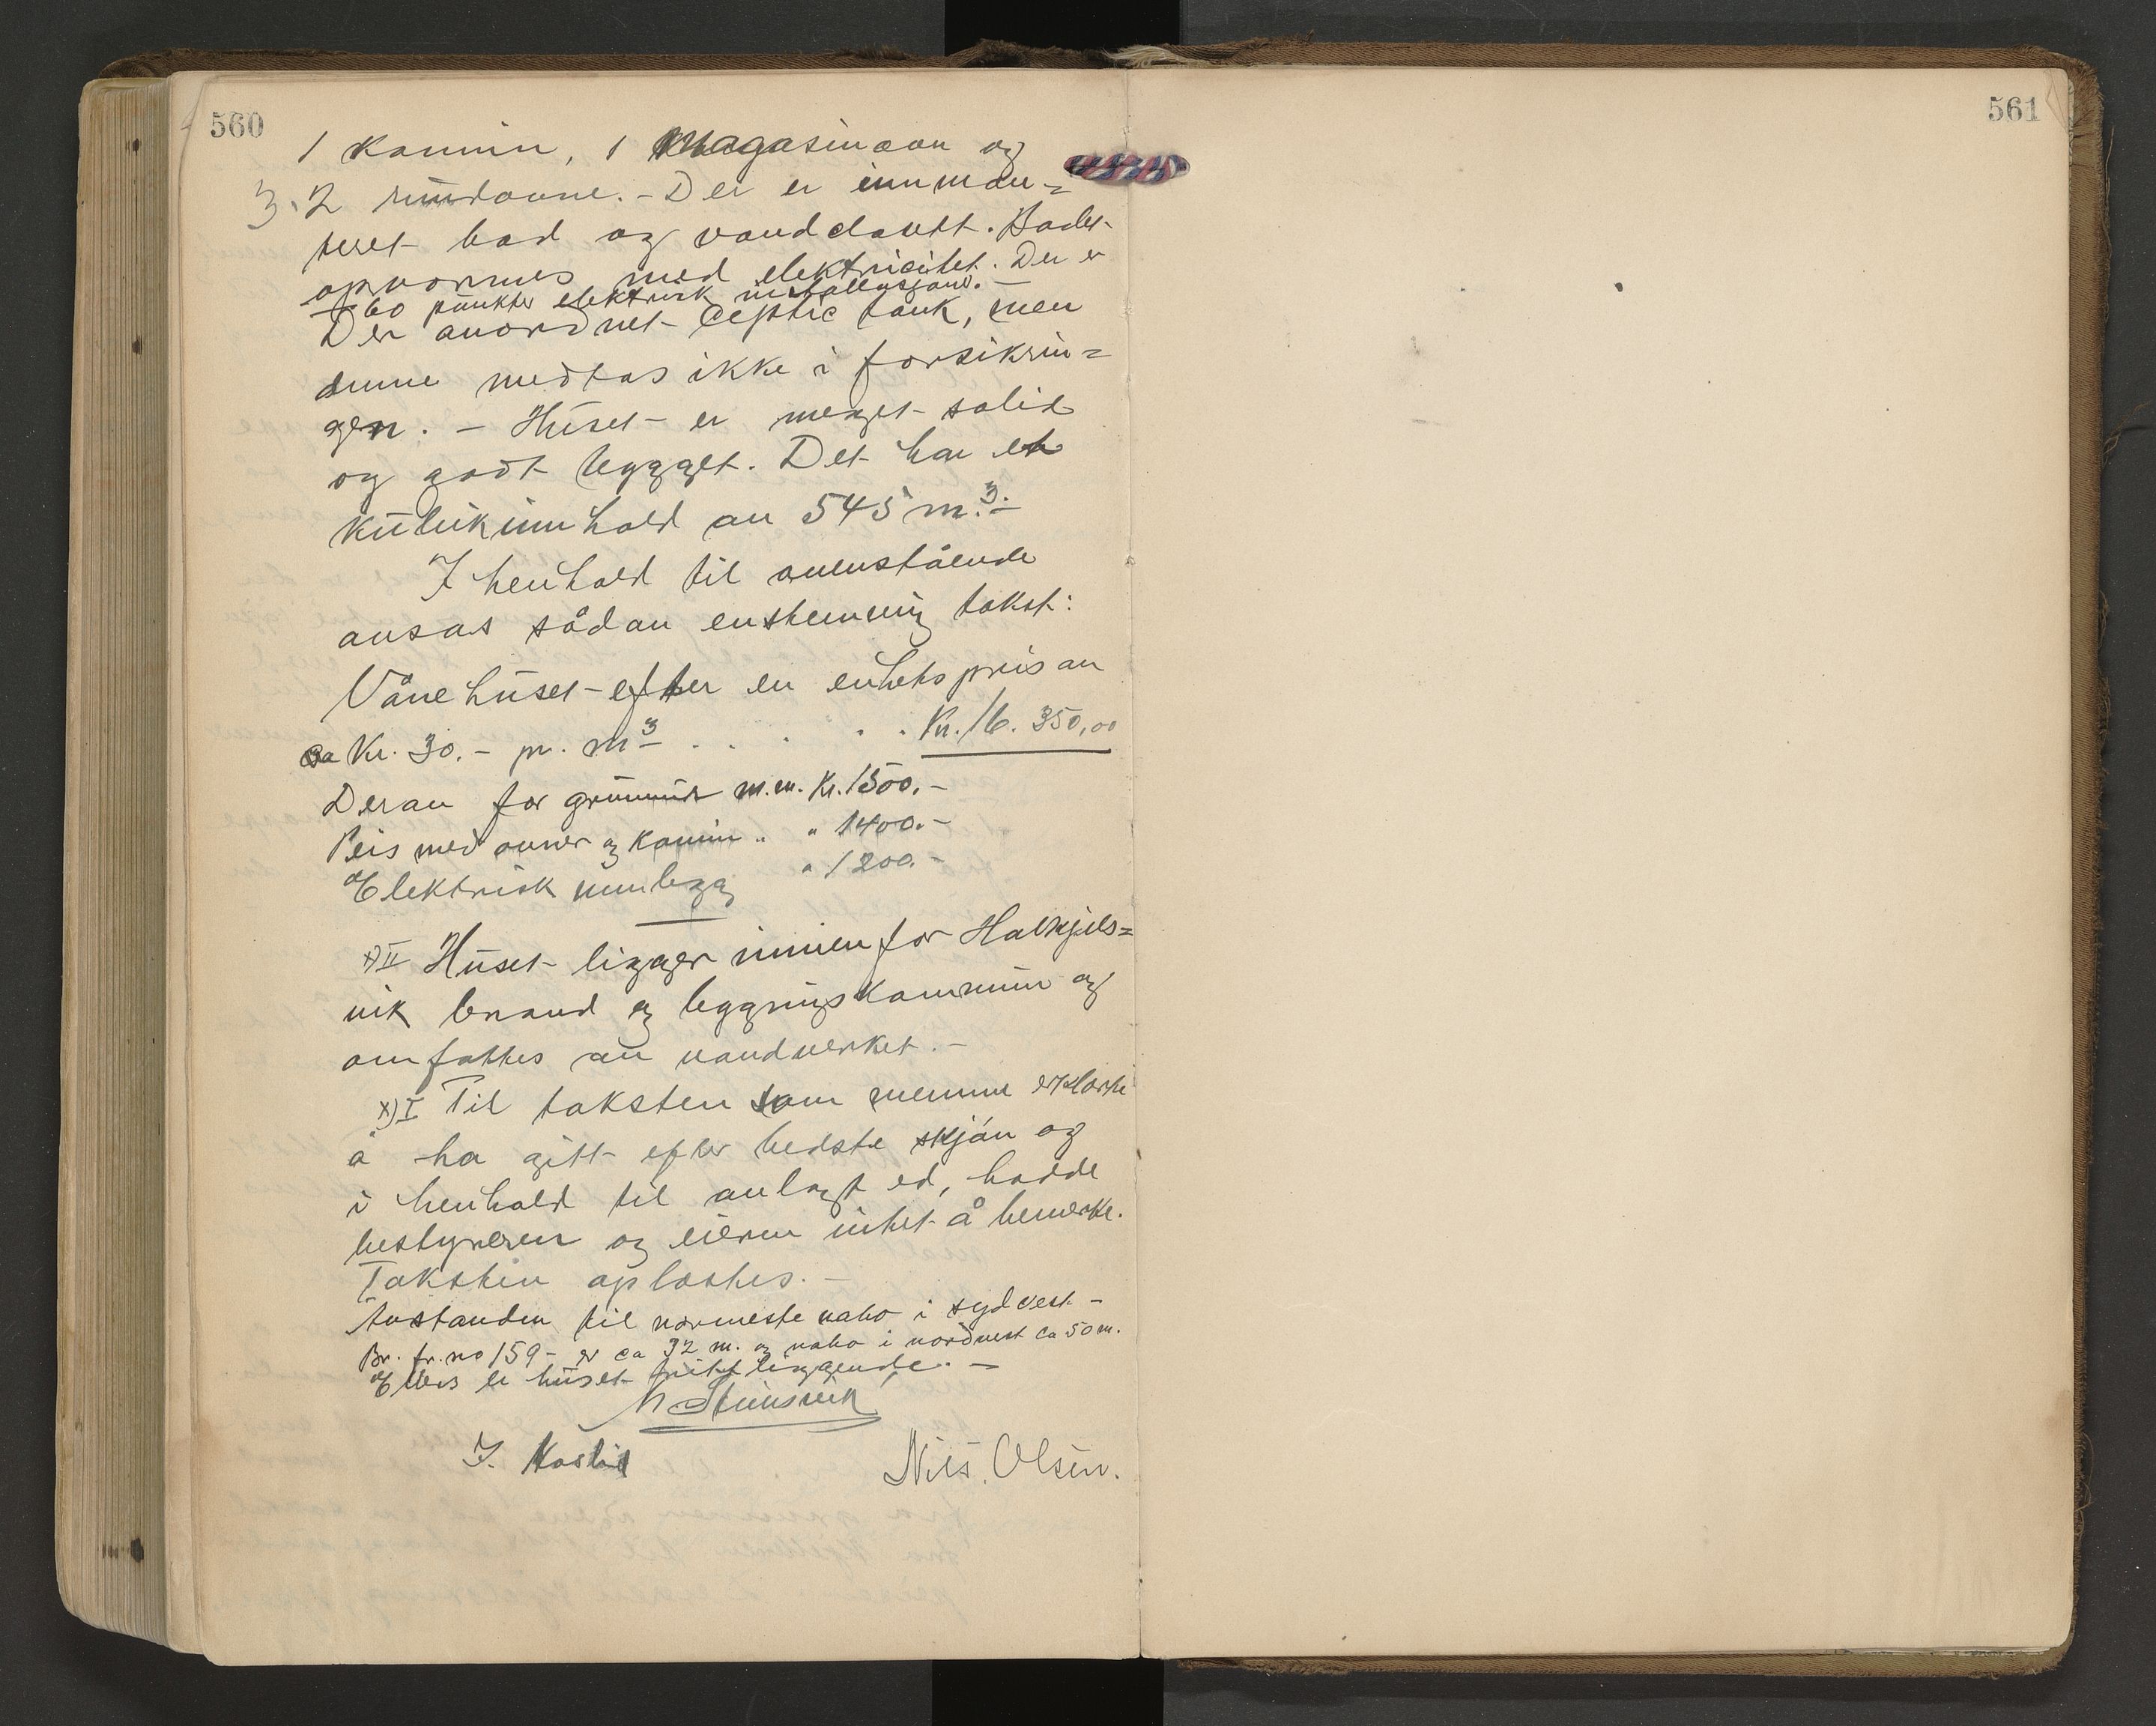 560
1 kamin, 1 magasinovn og
3. 2 rundovne. - Der er innmon=
teret bad og vandclosett. Badet
opvarmes med elektricitet. Der er
60 punkter elektrisk installasjon. -
Der anordnet ceptic tank, men
denne medtas ikke i forsikrin=
gen. - Huset er meget solid
og godt bygget. Det har et
kubikinnhold av 545 m.³ -
I henhold til ovenstående
ansas sådan enstemmig takst:
Vånehuset efter en enhetspris av
ca Kr. 30.- pr. m³ . . . . . Kr. 16.350,00
Derav for grunnmur m.m. Kr. 1500.-
Peis med ovner og kamin " " 1400.-
Elektrisk innlegg " 1200.-
x) II Huset ligger innenfor Halkjels=
vik brand og bygningskommun og
omfattes av vandverket. -
x) I Til taksten som mennene erklærte
å ha gitt efter bedste skjøn og
i henhold til avlagt ed, hadde
bestyreren og eieren intet å bemerke.
Taksten oplæstes. -
Avstanden til nærmeste nabo i sydvest -
Br. fr. no 159 - er ca 32 m. og nabo i nordvest ca 50 m.
Ellers er huset fritt liggende. -
N Steinsvik
J. Kaslid
Nils. Olsen.
561